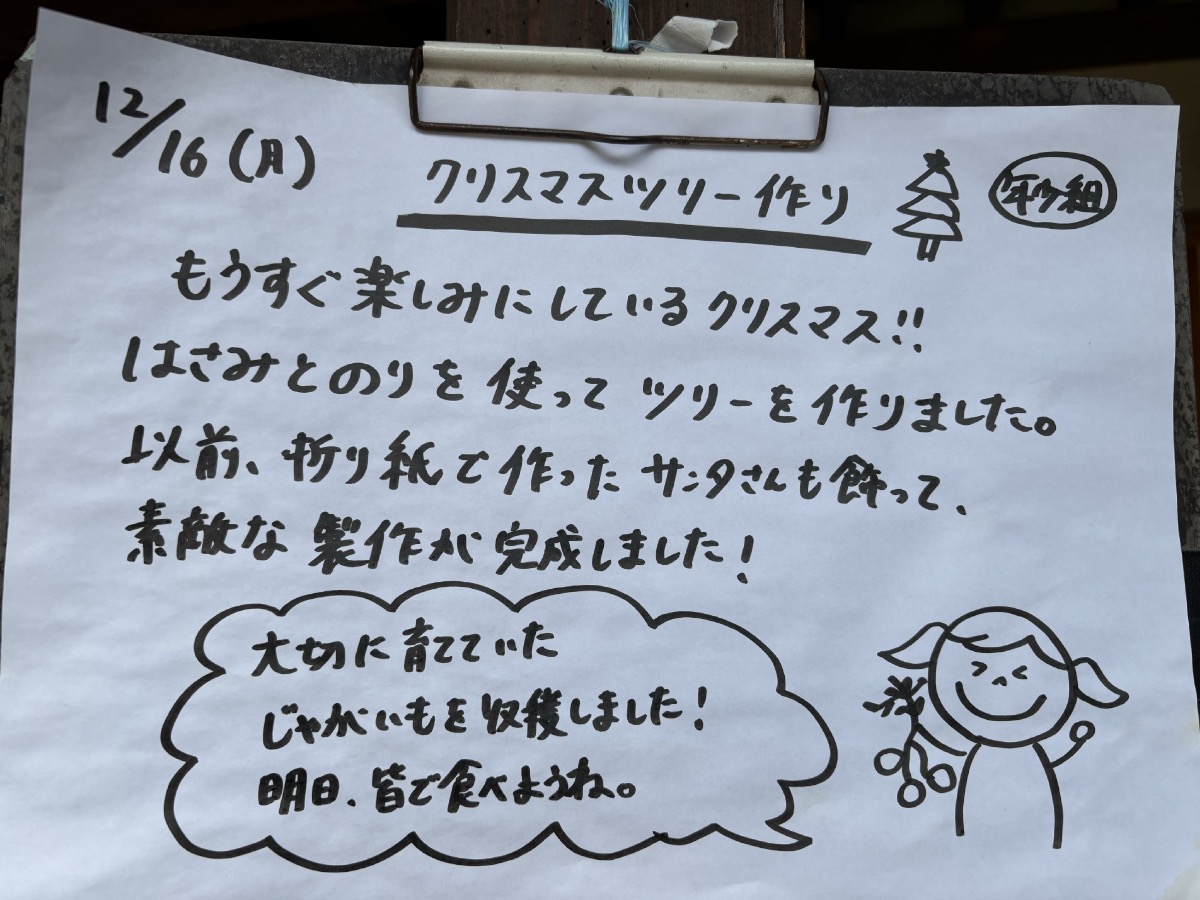 12/16(月)
クリスマスツリー作り
年少組
もうすぐ楽しみにしているクリスマス!!
はさみとのりを使ってツリーを作りました。
以前、折り紙で作ったサンタさんも飾って、
素敵な製作が完成しました!
大切に育てていた
じゃがいもを収穫しました!
明日、皆で食べようね。